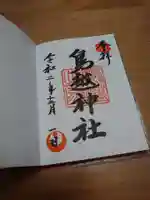 奉拝
鳥越神社
令和二年十月一日